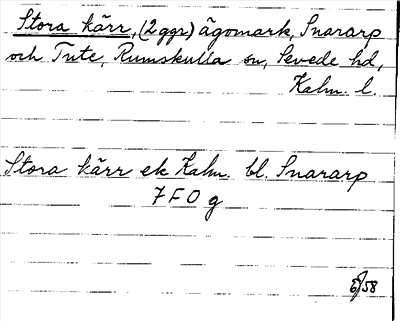 Stora kärr, (2 ggr) ägomark, Snararp
och Tute, Rumskulla sn, Sevede hd,
Kalm. l.
Stora kärr ek Kalm. bl. Snararp
7 F O g
5/58